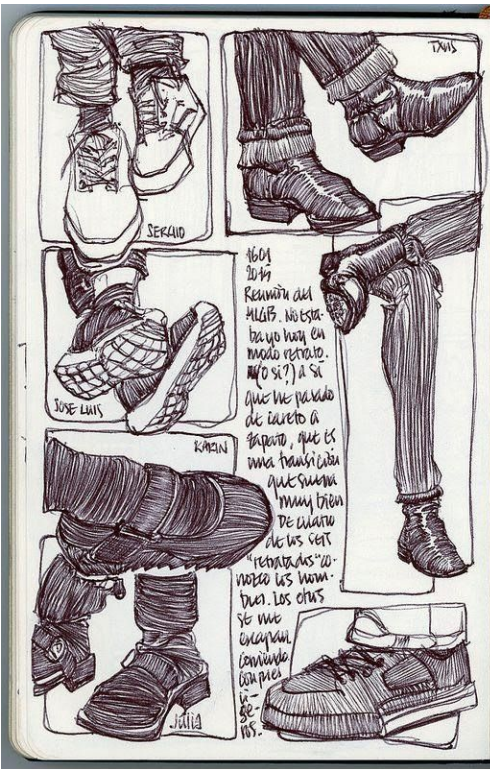 TXUS
SERGIO
JOSE LUIS
KARIN
JULIA
1601
2015
Reunión del
No esta-
ba yo hoy en
modo retrato.
(o sí?) a sí
que he pasado
de careto a
zapato, que es
una transición
que suena
muy bien
De cuatro
de los seis
"retratados" co-
nozco los nom-
bres. Los otros
se me
escapan
corriendo
con pies
li-
ge-
ros.